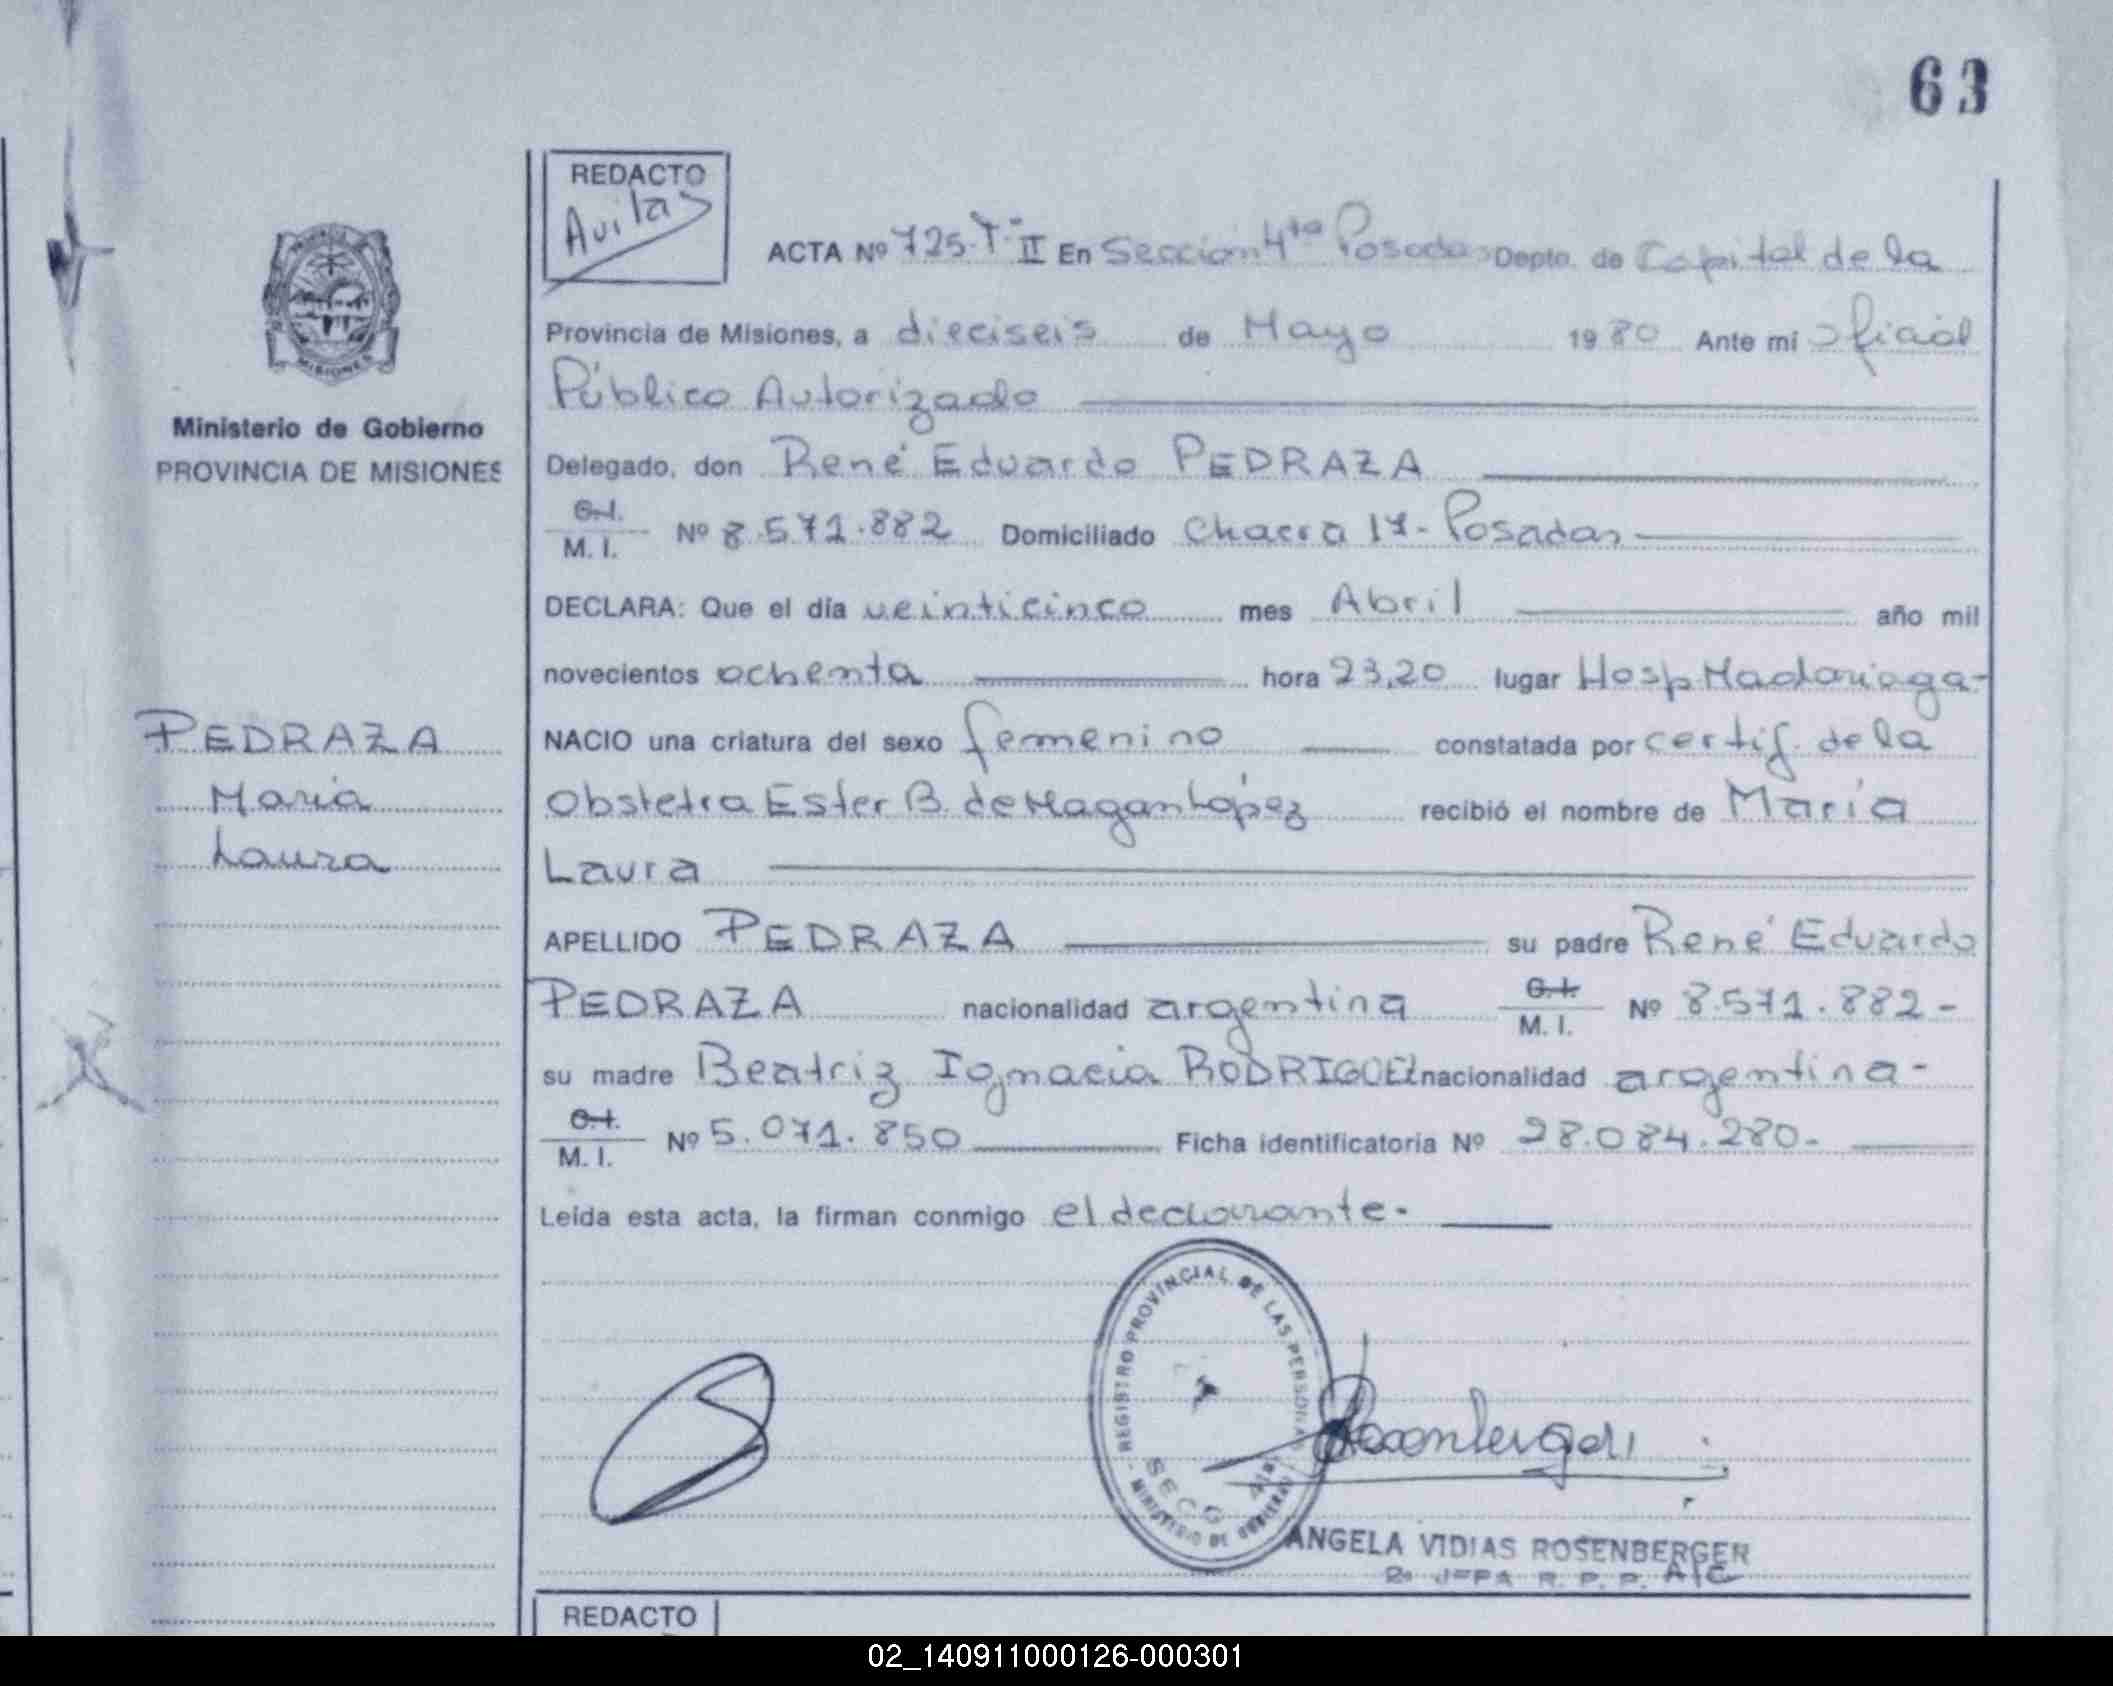 63
REDACTO
Avila
ACTA Nº 725. T- II En Sección 4ta Posadas Depto. de Capital de la
MISIONES
Provincia de Misiones, a dieciseis de Mayo 1980 Ante mi Oficial
Público Autorizado
Ministerio de Gobierno
PROVINCIA DE MISIONES
Delegado, don René Eduardo PEDRAZA
C.I.
M. I. Nº 8.571.882 Domiciliado Chacra 17- Posadas
DECLARA: Que el día veinticinco mes Abril año mil
novecientos ochenta hora 23,20 lugar Hosp Madariaga-
PEDRAZA
Maria
Laura
NACIO una criatura del sexo femenino constatada por certif. de la
Obstetra Ester B. de Magan López recibió el nombre de María
Laura
APELLIDO PEDRAZA su padre René Eduardo
PEDRAZA nacionalidad argentina C.I.
M. I. Nº 8.571.882-
su madre Beatriz Ignacia RODRIGUEZ nacionalidad argentina-
C.I.
M. I. Nº 5.071.850 Ficha identificatoria Nº 28.084.280.-
Leída esta acta, la firman conmigo el declarante.-
REGISTRO PROVINCIAL DE LAS PERSONAS
MINISTERIO DE GOBIERNO
SECC. 4ta
Rosenberger
ANGELA VIDIAS ROSENBERGER
2º JEFA R. P. P. A/C
REDACTO
02_140911000126-000301